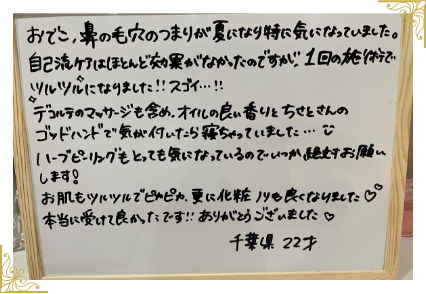 おでこ,鼻の毛穴のつまりが夏になり特に気になっていました。
自己流ケアはほとんど効果がなかったのですが、1回の施術で
ツルツルになりました!!スゴイ…!!
デコルテのマッサージも含め、オイルの良い香りとちさとさんの
ゴッドハンドで気が付いたら寝ちゃっていました…
ハーブピーリングもとっても気になっているのでいつか絶対お願い
します!
お肌もツルツルでピカピカ、更に化粧ノリも良くなりました♡♡
本当に受けて良かったです!!ありがとうございました♡
千葉県 22才